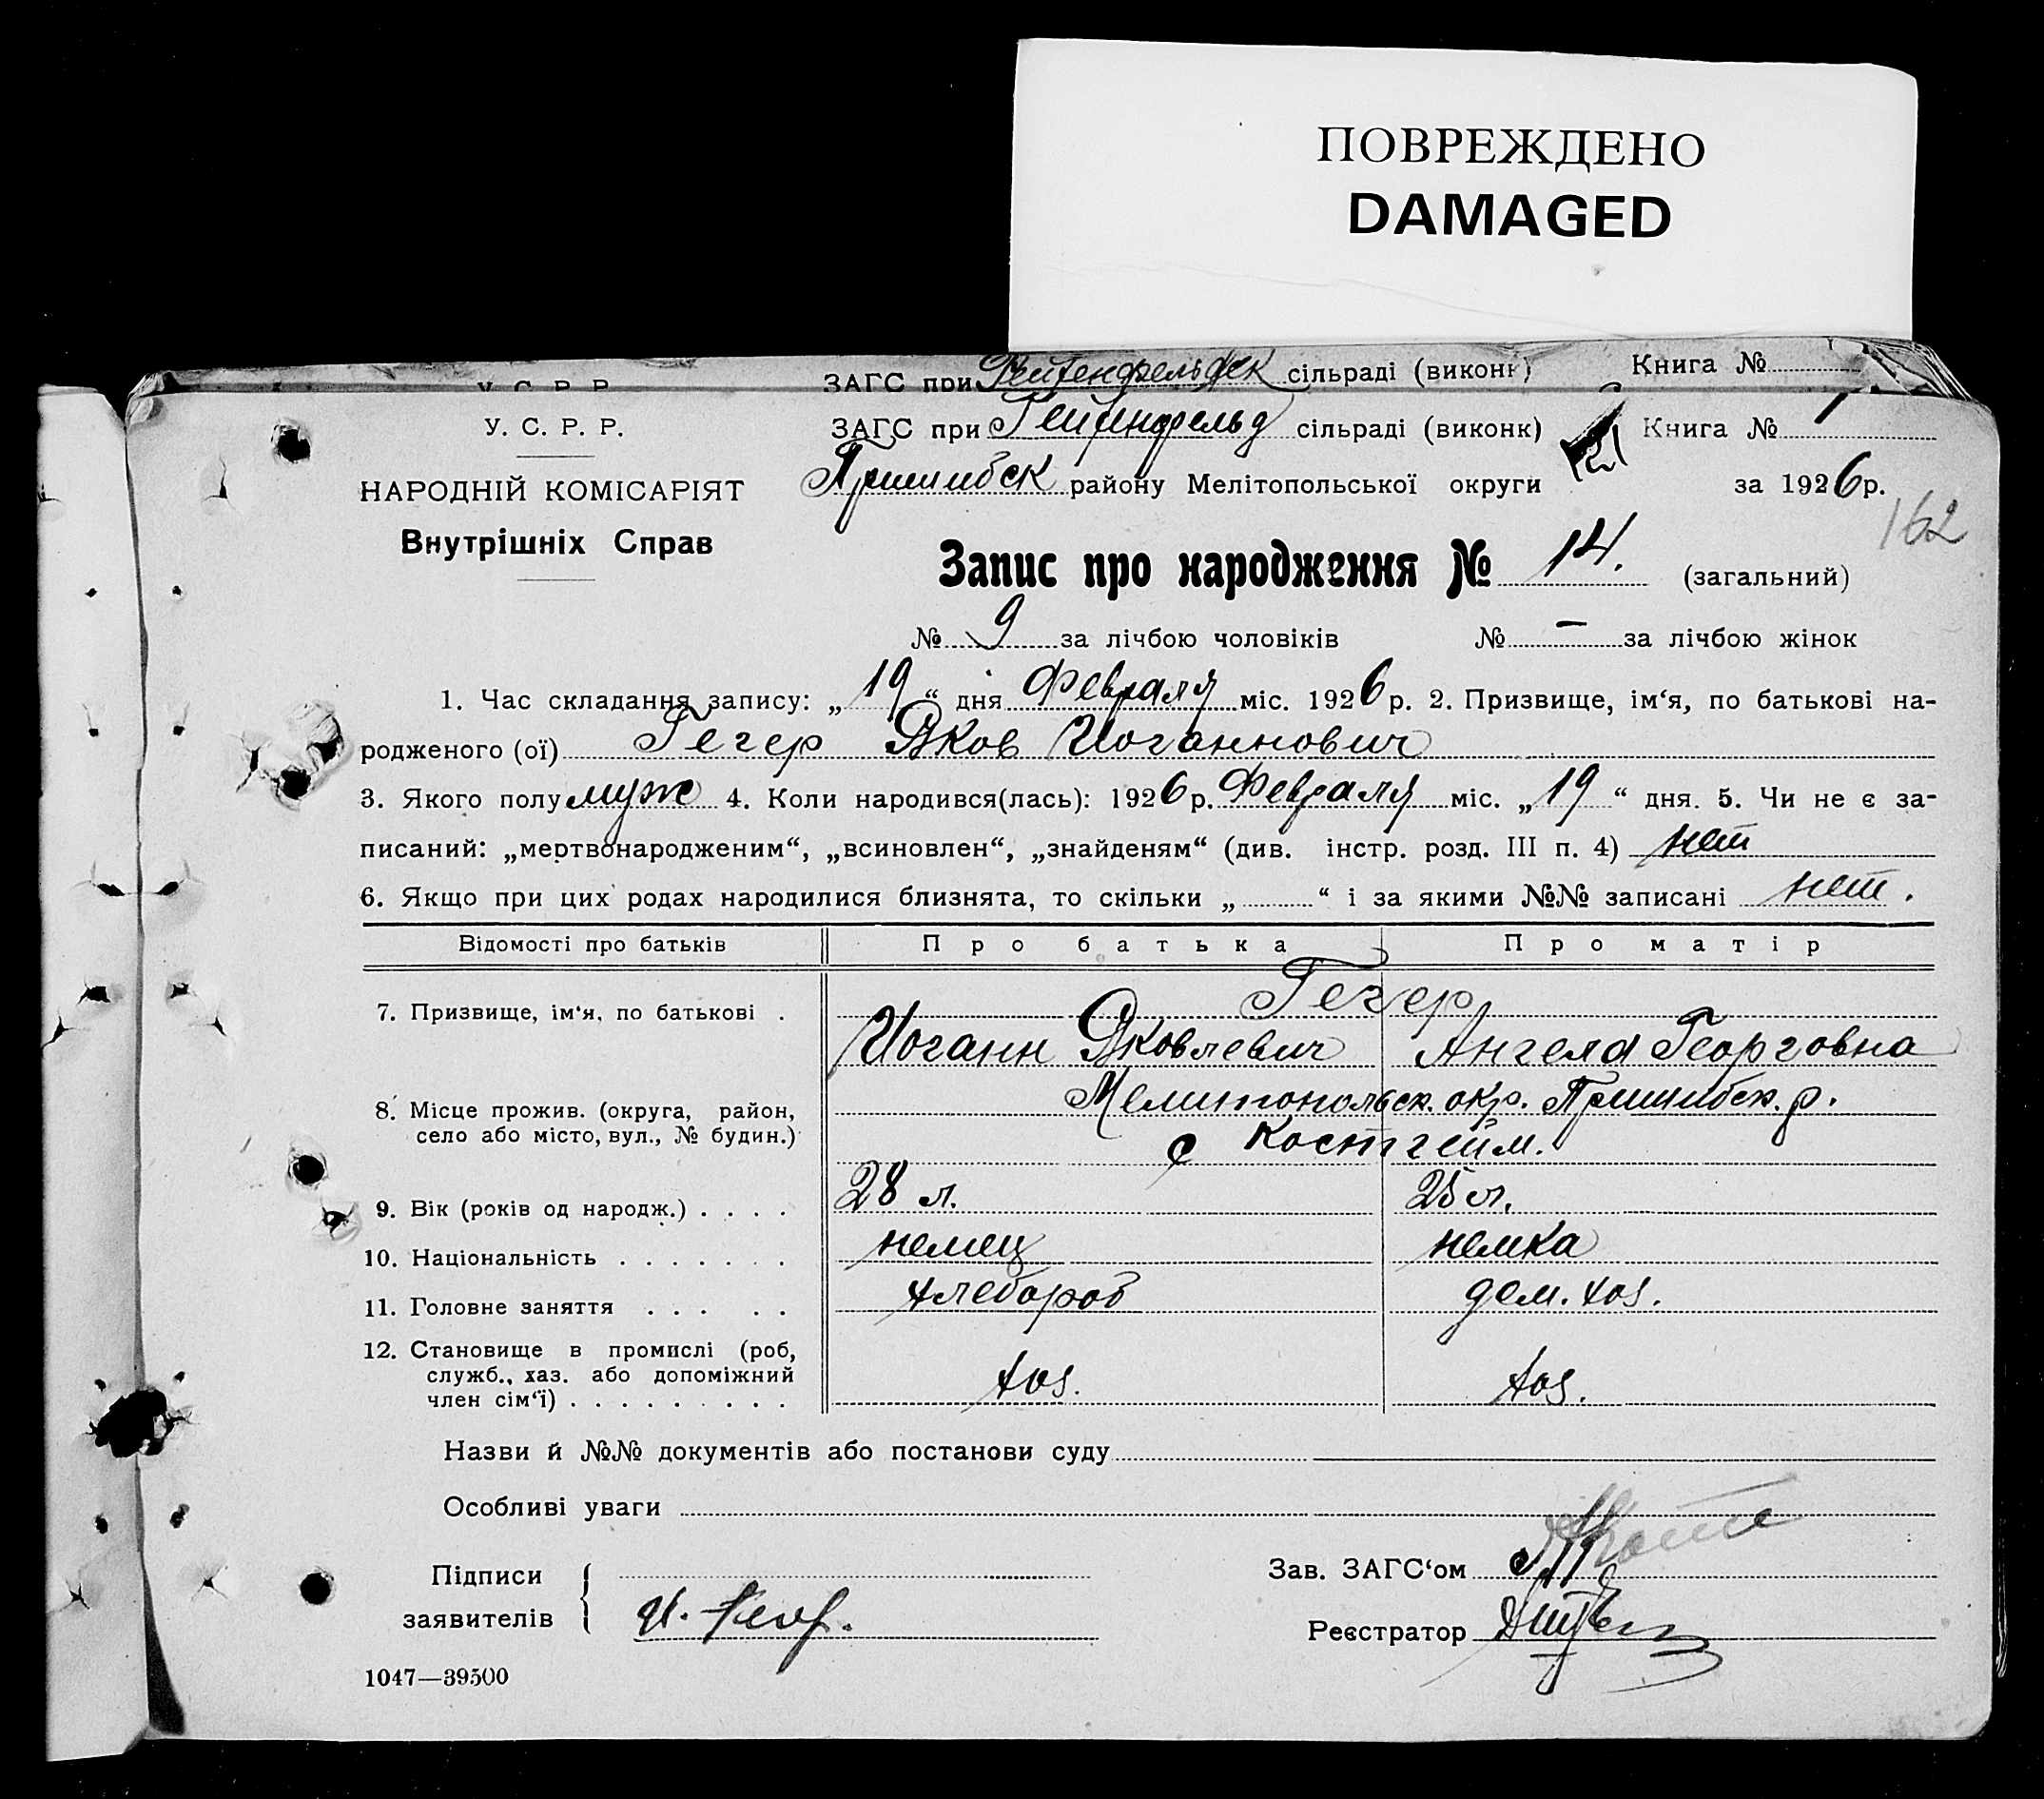 ПОВРЕЖДЕНО
DAMAGED
У. С. Р. Р.
ЗАГС при Гейденфельдск сільраді (виконк) Книга №
У. С. Р. Р.
ЗАГС при Гейденфельд сільраді (виконк) Книга № 1
НАРОДНІЙ КОМІСАРІЯТ
Пришибск району Мелітопольської округи за 1926 р.
Внутрішніх Справ
162
Запис про народження № 14. (загальний)
№ 9 за лічбою чоловіків № — за лічбою жінок
1. Час складання запису: „19“ дня Февраля міс. 1926 р. 2. Призвище, ім‘я, по батькові на-
родженого (ої) Гегер Яков Иоганнович
3. Якого полу муж 4. Коли народився(лась): 1926 р. Февраля міс. „19“ дня. 5. Чи не є за-
писаний: „мертвонародженим“, „всиновлен“, „знайденям“ (див. інстр. розд. III п. 4) нет
6. Якщо при цих родах народилися близнята, то скільки „ “ і за якими №№ записані нет.
Відомості про батьків Про батька Про матір
Гегер
7. Призвище, ім‘я, по батькові .
Иоганн Яковлевич Ангела Георговна
8. Місце прожив. (округа, район, Мелитопольск. окр. Пришибск. р.
село або місто, вул., № будин.) с Костгейм.
9. Вік (років од народж.) . . . . 28 л. 25 л.
10. Національність . . . . . . . немец немка
11. Головне заняття . . . . . хлебороб дом. хоз.
12. Становище в промислі (роб,
служб., хаз. або допоміжний хоз. хоз.
член сім‘ї) . . . . . . . . .
Назви й №№ документів або постанови суду
Особливі уваги
Підписи
Зав. ЗАГС‘ом
заявителів
Реєстратор
1047—39500